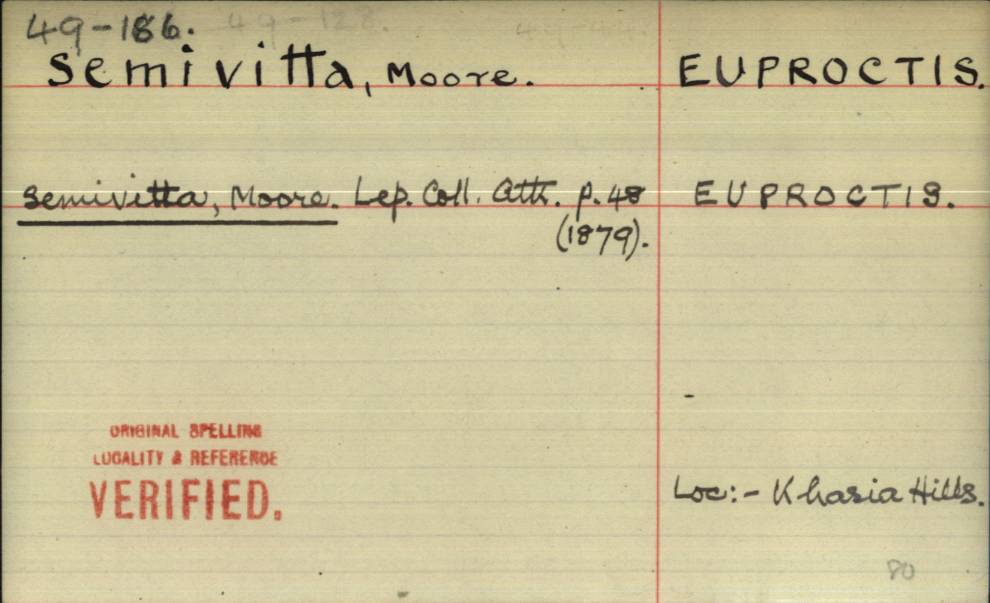 49-186. 49-128.
semivitta, Moore. EUPROCTIS.
semivitta, Moore. Lep. Coll. Atk. p. 48 EUPROCTIS.
(1879).
ORIGINAL SPELLING
LOCALITY & REFERENCE
VERIFIED.
Loc:- Khasia Hills.
80